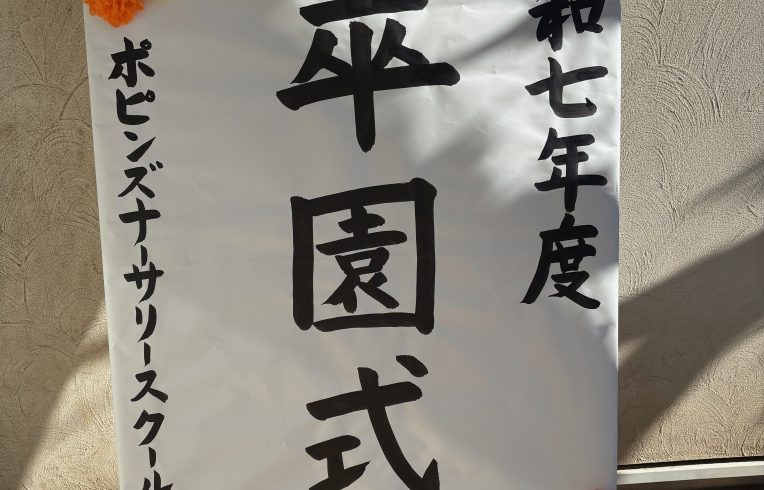 和七年度
卒園式
ポピンズナーサリースクール